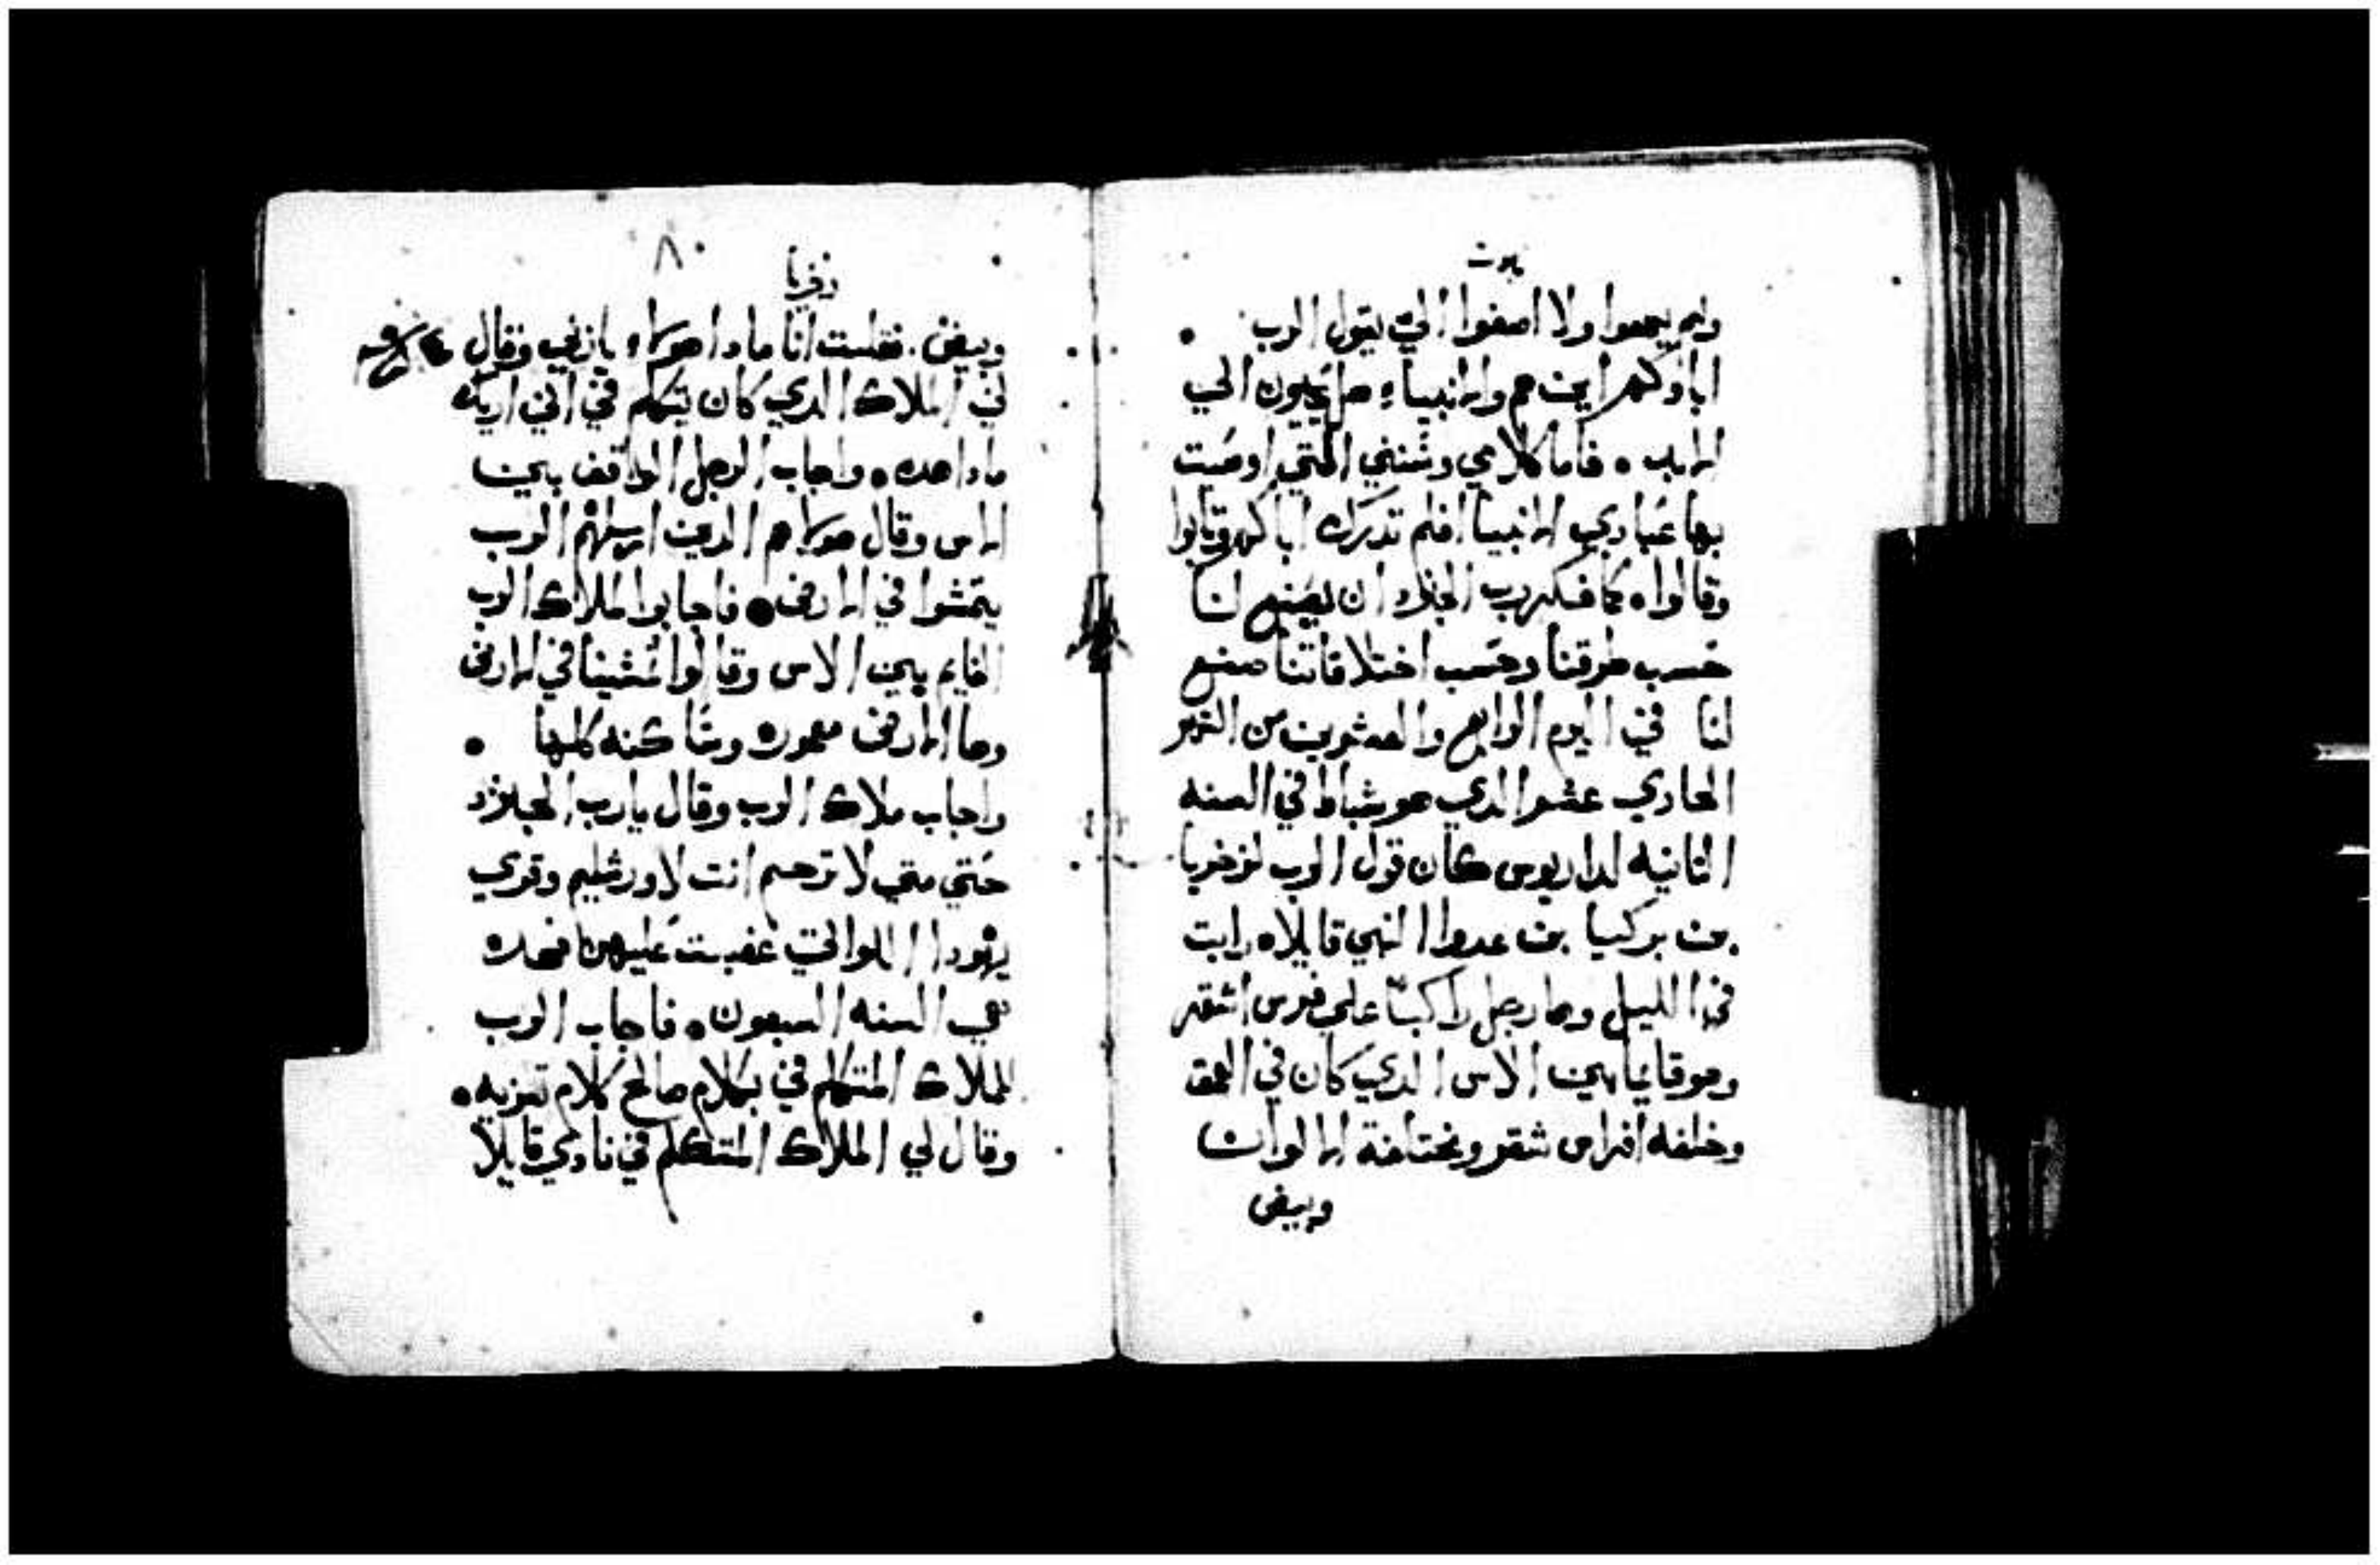 ولم يسمعوا ولا اصغوا الي يقول الرب
اباوكم اين هم والانبياء هل يحيون الي
الابد • فاما كلامي وسنني التي اوصيت
بها عبادي الانبيا افلم تدرك اباكم وتابوا
وقالوا • كما فكر رب الجنود ان يصنع لنا
حسب طرقنا وحسب اختلاقاتنا صنع
لنا في اليوم الرابع والعشرين من الشهر
الحادي عشر الدي هو شباط في السنه
التانيه لداريوس كان قول الرب لزخريا
بن بركيا بن عدوا النبي قايلا • رايت
في الليل وها رجل راكبا علي فرس اشقر
وهو قايما بين الاس الدي كان في العمق
وخلفه افراس شقر ومختلفة الالوان
وبيض
زخريا
٨٠
وبيض. فقلت انا ما دا هولاء يا ربي وقال
لي الملاك الدي كان يتكلم في اني اريك
ما دا هده • واجاب الرجل الواقف بين
الاس وقال هولا هم الدين ارسلهم الرب
يتمشوا في الارض • فاجابوا الملاك الرب
القايم بين الاس وقالوا تمشينا في الارض
وها الارض معموره وساكنه كلها •
واجاب ملاك الرب وقال يارب الجنود
حتي متي لا ترحم انت لاورشليم وقري
يهودا اللواتي غضبت عليهن فهده
هي السنه السبعون • فاجاب الرب
للملاك المتكلم في بكلام صالح كلام تعزيه •
وقال لي الملاك المتكلم في نادي قايلا